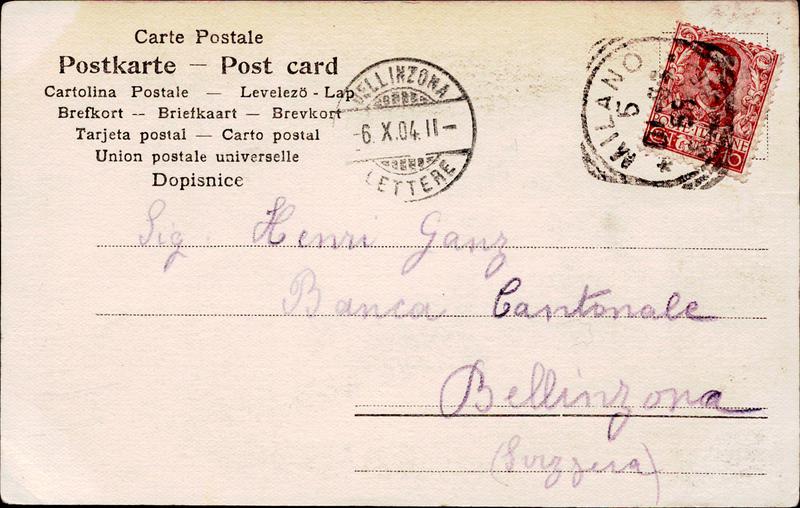 Carte Postale
Postkarte — Post card
Cartolina Postale — Levelező - Lap
Brefkort -- Briefkaart — Brevkort
Tarjeta postal — Carto postal
Union postale universelle
Dopisnice
BELLINZONA
-6. X.04. II-
LETTERE
MILANO
Sig. Henri Ganz
Banca Cantonale
Bellinzona
(Svizzera)